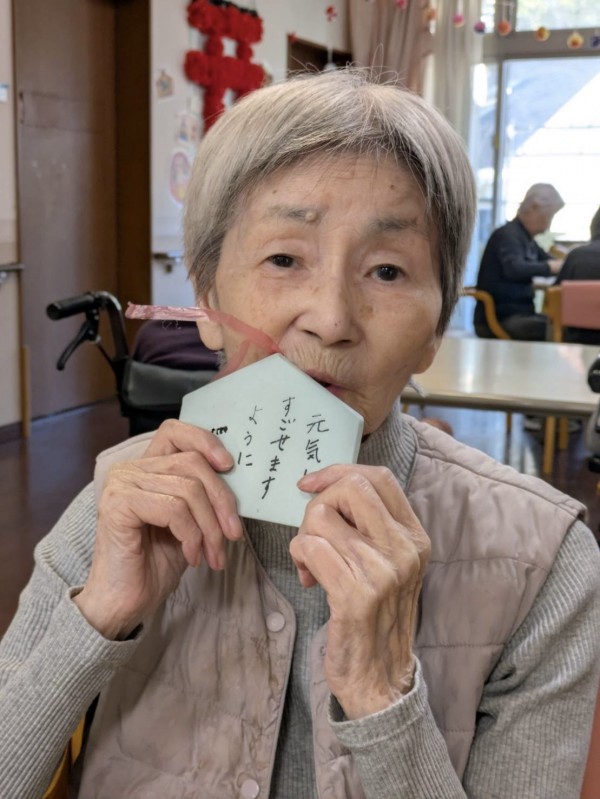 元気
すごせます
ように